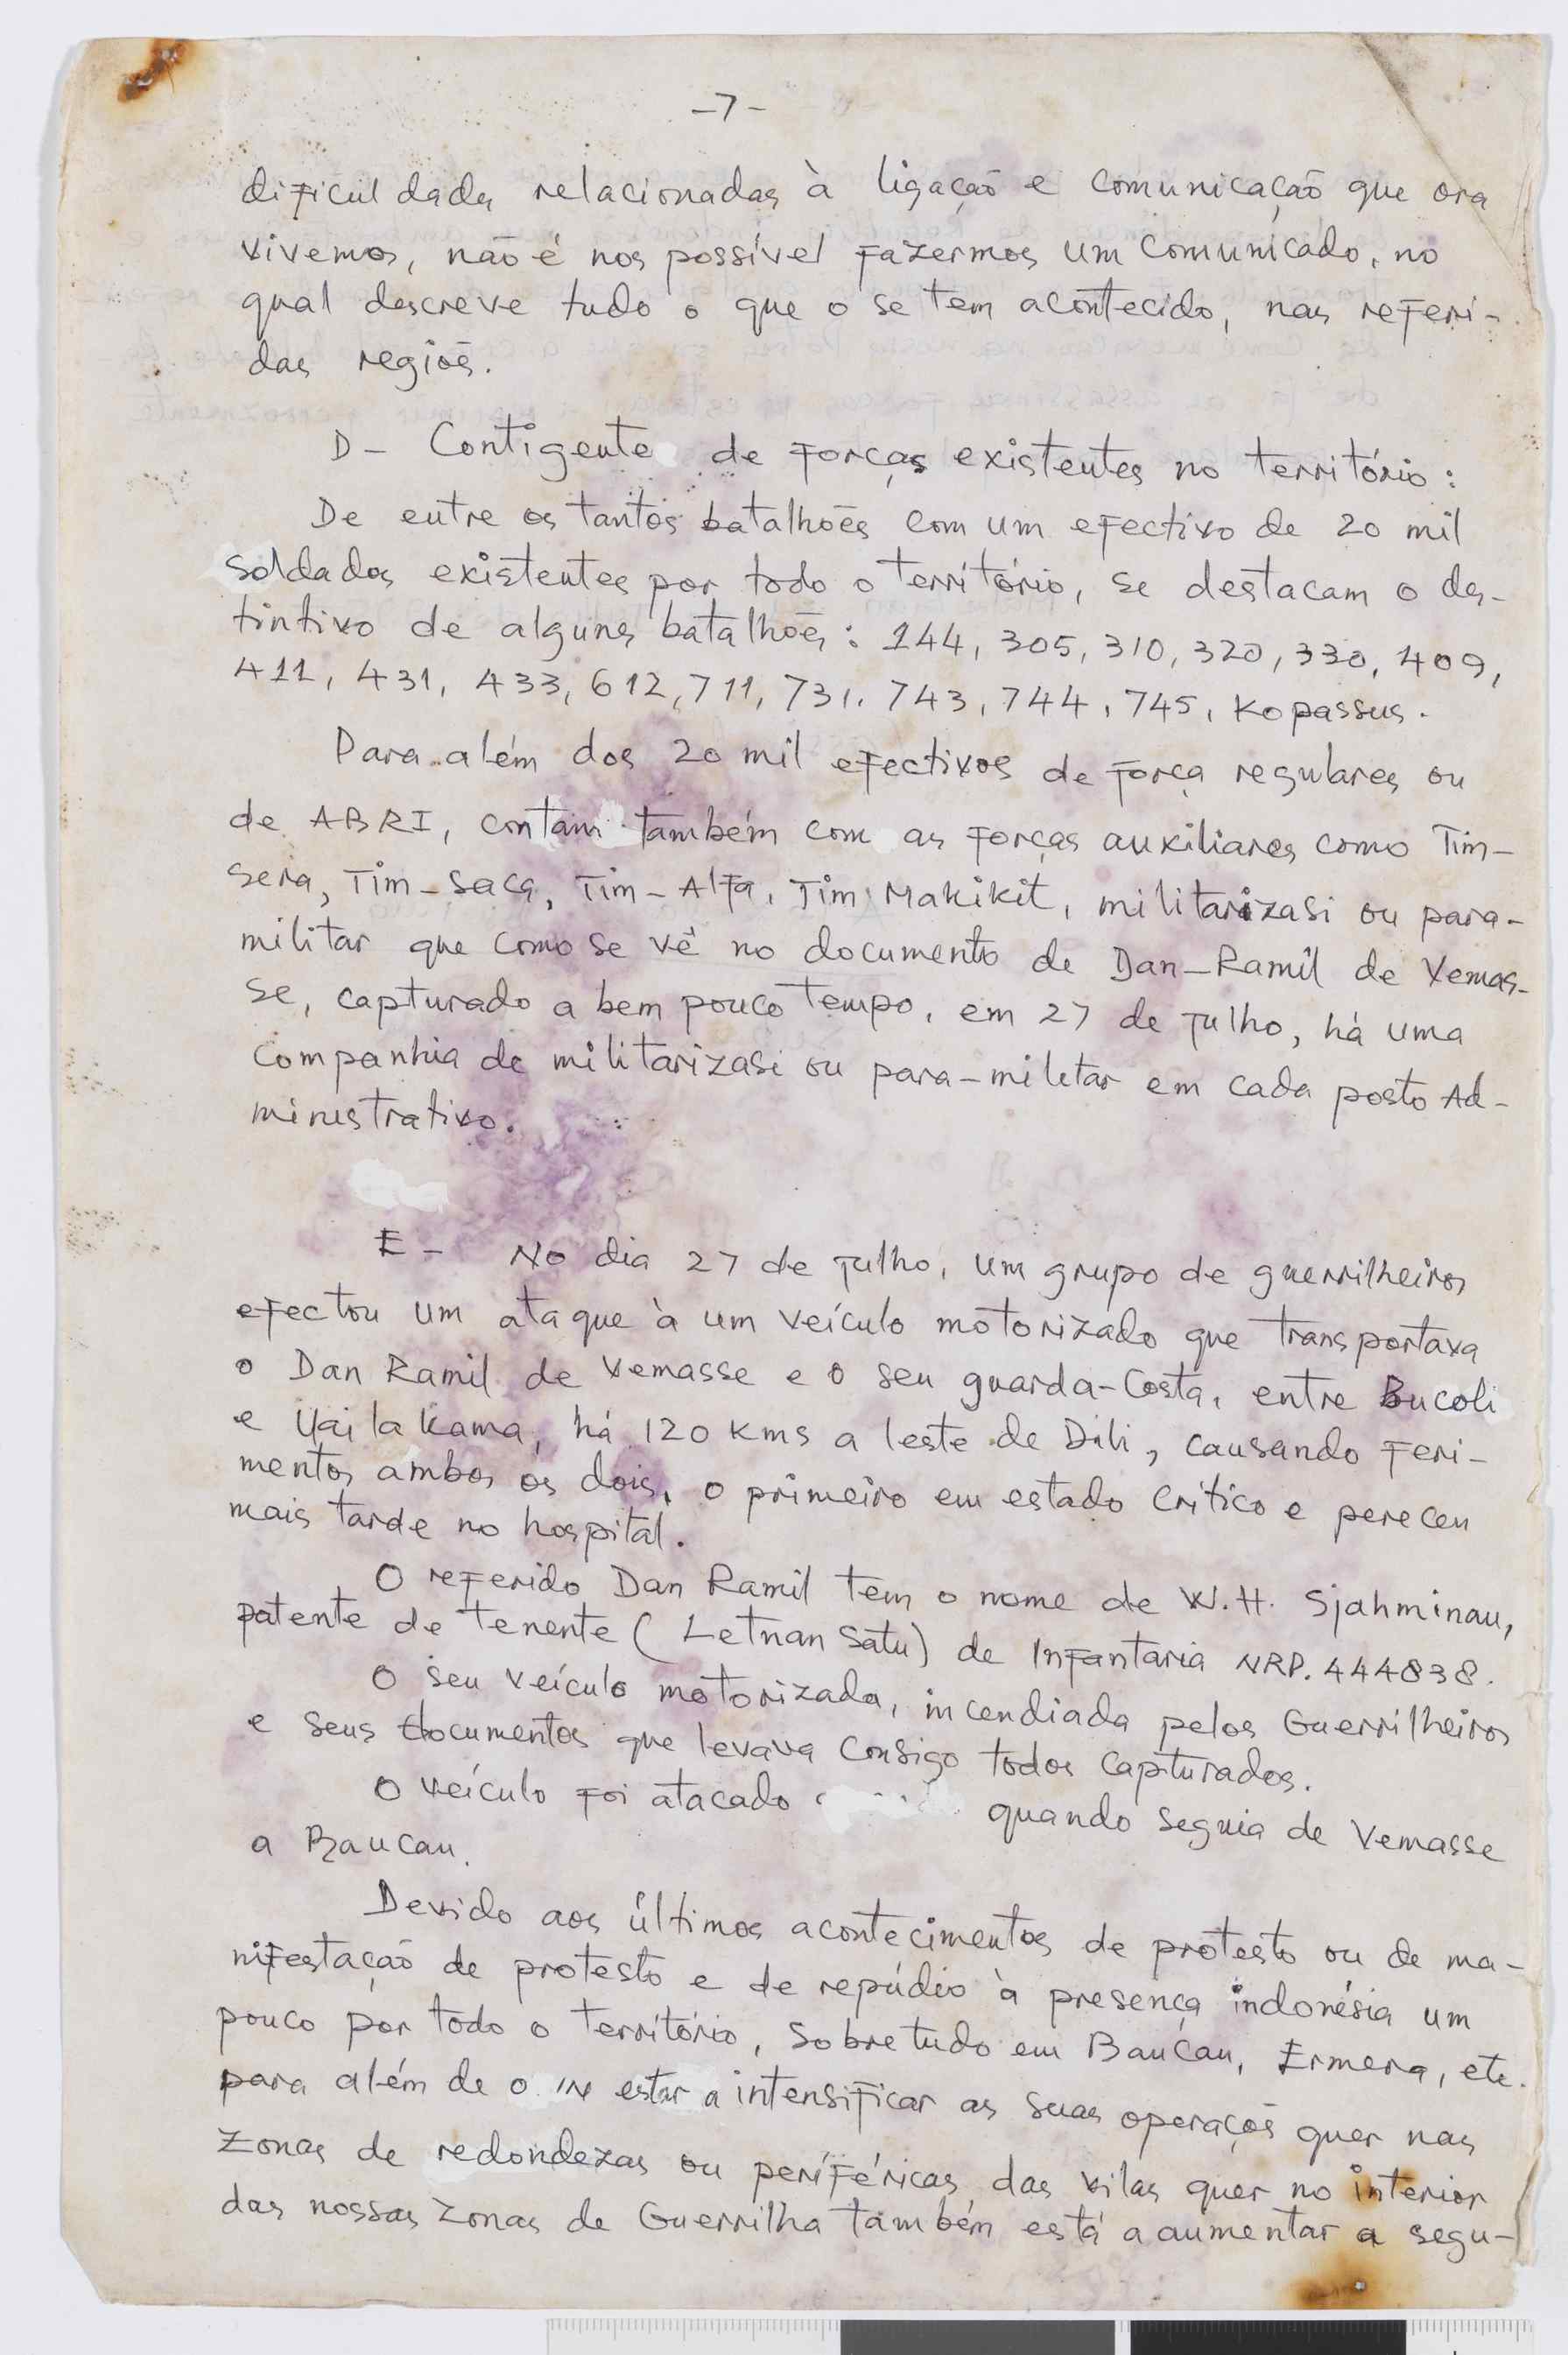 -7-
dificuldades relacionadas à ligação e comunicação que ora
vivemos, não é nos possível fazermos um comunicado, no
qual descreve tudo o que o se tem acontecido, nas referi-
das regiõs.
D- Contigente de forças existentes no território:
De entre os tantos batalhões com um efectivo de 20 mil
soldados existentes por todo o território, se destacam o des-
tintivo de alguns batalhões: 144, 305, 310, 320, 330, 409,
411, 431, 433, 612, 711, 731, 743, 744, 745, Kopassus.
Para além dos 20 mil efectivos de força regulares ou
de ABRI, contam também com as forças auxiliares como Tim-
sera, Tim-Saca, Tim-Alfa, Tim Makikit, militarizasi ou para-
militar que como se vê no documento de Dan-Ramil de Vemas-
se, capturado a bem pouco tempo, em 27 de julho, há uma
companhia de militarizasi ou para-militar em cada posto Ad-
ministrativo.
E- No dia 27 de julho, um grupo de guerrilheiros
efectou um ataque à um veículo motorizado que transportava
o Dan Ramil de Vemasse e o seu guarda-Costa, entre Bucoli
e Uailakama, há 120 Kms a leste de Dili, causando feri-
mentos ambos os dois, o primeiro em estado crítico e pereceu
mais tarde no hospital.
O referido Dan Ramil tem o nome de W.H. Sjahminau,
patente de tenente (Letnan Satu) de Infantaria NRP. 444838.
O seu veículo motorizada, incendiada pelos Guerrilheiros
e seus documentos que levava consigo todos capturados.
O veículo foi atacado quando seguia de Vemasse
a Baucau.
Devido aos últimos acontecimentos de protesto ou de ma-
nifestação de protesto e de repúdio à presença indonésia um
pouco por todo o território, sobretudo em Baucau, Ermera, etc.
para além de o IN estar a intensificar as suas operações quer nas
zonas de redondezas ou periféricas das vilas quer no interior
das nossas zonas de Guerrilha também está a aumentar a segu-